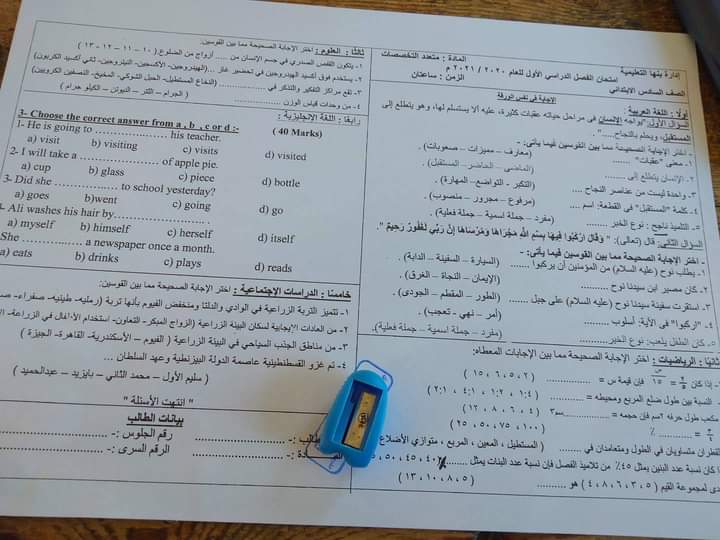 إدارة بنها التعليمية
المادة : متعدد التخصصات
امتحان الفصل الدراسي الأول للعام ٢٠٢٠ / ٢٠٢١ م
الصف السادس الابتدائي
الزمن : ساعتان
الإجابة في نفس الورقة
أولاً : اللغة العربية :
السؤال الأول: "يواجه الإنسان في مراحل حياته عقبات كثيرة، عليه ألا يستسلم لها، وهو يتطلع إلى
المستقبل، ويحلم بالنجاح......"
- اختر الإجابة الصحيحة مما بين القوسين فيما يأتى: -
١- معنى "عقبات" ...... (معارف – مميزات – صعوبات) .
٢- الإنسان يتطلع إلى ...... (الماضي – الحاضر – المستقبل) .
٣- واحدة ليست من عناصر النجاح ...... (التكبر – التواضع – المهارة) .
٤- كلمة "المستقبل" في القطعة: اسم .... (مرفوع – مجرور – منصوب) .
٥- التلميذ ناجح : نوع الخبر ........ (مفرد – جملة اسمية – جملة فعلية) .
السؤال الثانى: قال (تعالى): " وَقَالَ ارْكَبُوا فِيهَا بِسْمِ اللَّهِ مَجْرَاهَا وَمُرْسَاهَا إِنَّ رَبِّي لَغَفُورٌ رَحِيمٌ ".
- اختر الإجابة الصحيحة مما بين القوسين فيما يأتى: -
١- يطلب نوح (عليه السلام) من المؤمنين أن يركبوا ...... (السيارة – السفينة – الدابة) .
٢- كان مصير ابن سيدنا نوح ...... (الإيمان – النجاة – الغرق) .
٣- استقرت سفينة سيدنا نوح (عليه السلام) على جبل ...... (الطور – المقطم – الجودى) .
٤- "اركبوا" فى الآية: أسلوب ........ (أمر – نهي - تعجب) .
٥- كان الطفل يلعب: نوع الخبر........ (مفرد – جملة اسمية – جملة فعلية).
ثانيًا : الرياضيات : اختر الإجابة الصحيحة مما بين الإجابات المعطاه:
- إذا كان فإن قيمة س = .......... ( ٢ ، ٥ ، ٦ ، ١٥ )
- النسبة بين طول ضلع المربع ومحيطه = ............ ( ١:٢ ، ١:٤ ، ٤:١ ، ٢:١ )
مكعب طول حرفه ٢سم فإن حجمه = ..........سم٣ ( ٤ ، ٦ ، ٨ ، ١٢ )
= .......... ٪ ( ٢٥ ، ٥٠ ، ٧٥ ، ١٠٠ )
القطران متساويان في الطول ومتعامدان في ........ ( المستطيل ، المعين ، المربع ، متوازي الأضلاع
إذا كان نسبة عدد البنين يمثل ٤٥٪ من تلاميذ الفصل فإن نسبة عدد البنات يمثل ........٪
مدى لمجموعة القيم ( ٥ ، ٣ ، ٦ ، ٨ ، ٤ ) هو .......... ( ٥ ، ٨ ، ١٠ ، ١٣ )
ثالثًا : العلوم : اختر الإجابة الصحيحة مما بين القوسين.
١- يتكون القفص الصدري في جسم الإنسان من .... أزواج من الضلوع ( ١٠ – ١١ – ١٢ – ١٣ )
٢- يستخدم فوق أكسيد الهيدروجين في تحضير غاز ...(الهيدروجين- الأكسجين- النيتروجين- ثاني أكسيد الكربون)
٣- تقع مراكز التفكير والتذكر في ................ (النخاع المستطيل- الحبل الشوكي- المخيخ- النصفين الكرويين)
٤- من وحدات قياس الوزن ................. ( الجرام – اللتر – النيوتن – الكيلو جرام )
رابعًا : اللغة الإنجليزية :
3- Choose the correct answer from a , b , c or d :- ( 40 Marks)
1- He is going to ...................... his teacher.
a) visit b) visiting c) visits d) visited
2- I will take a ....................... of apple pie.
a) cup b) glass c) piece d) bottle
3- Did she ....................... to school yesterday?
a) goes b)went c) going d) go
4- Ali washes his hair by......................
a) myself b) himself c) herself d) itself
She .................... a newspaper once a month.
a) eats b) drinks c) plays d) reads
خامسًا : الدراسات الإجتماعية : اختر الإجابة الصحيحة مما بين القوسين:
١- تتميز التربة الزراعية في الوادي والدلتا ومنخفض الفيوم بأنها تربة (رملية- طينيه- صفراء-
٢- من العادات الإيجابية لسكان البيئة الزراعية (الزواج المبكر- التعاون- استخدام الأطفال في الزراعة-
٣- من مناطق الجذب السياحي في البيئة الزراعية ( الفيوم – الأسكندرية- القاهرة- الجيزة )
٤- تم غزو القسطنطينية عاصمة الدولة البيزنطية وعهد السلطان ...
( سليم الأول – محمد الثاني – بايزيد – عبدالحميد )
" انتهت الأسئلة "
بيانات الطالب
رقم الجلوس :-
الرقم السرى :-